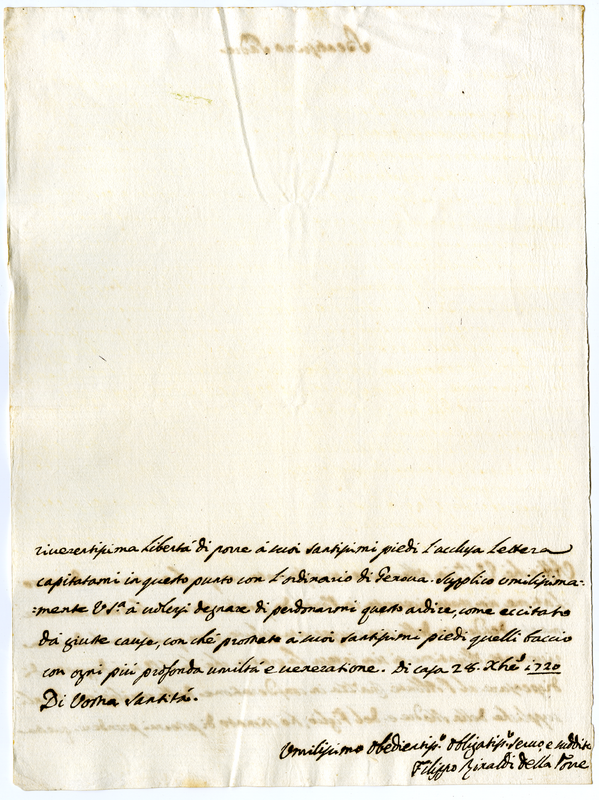 riverentissima libertà di porre à suoi santissimi piedi l'acclusa lettera
capitatami in questo punto con l'ordinario di Genova. Supplico umilissima-
-mente V. S.ᵗᵃ à volersi degnare di perdonarmi questo ardire, come eccitato
dà giuste cause, con ché prostrato à suoi santissimi piedi quelli baccio
con ogni più profonda umiltà e veneratione. Di casa 28. Xbre 1720
Di Vostra Santità.
Umilissimo Obedientiss.º Obligatiss.º servo, e suddito
Filippo Rinaldi della Torre